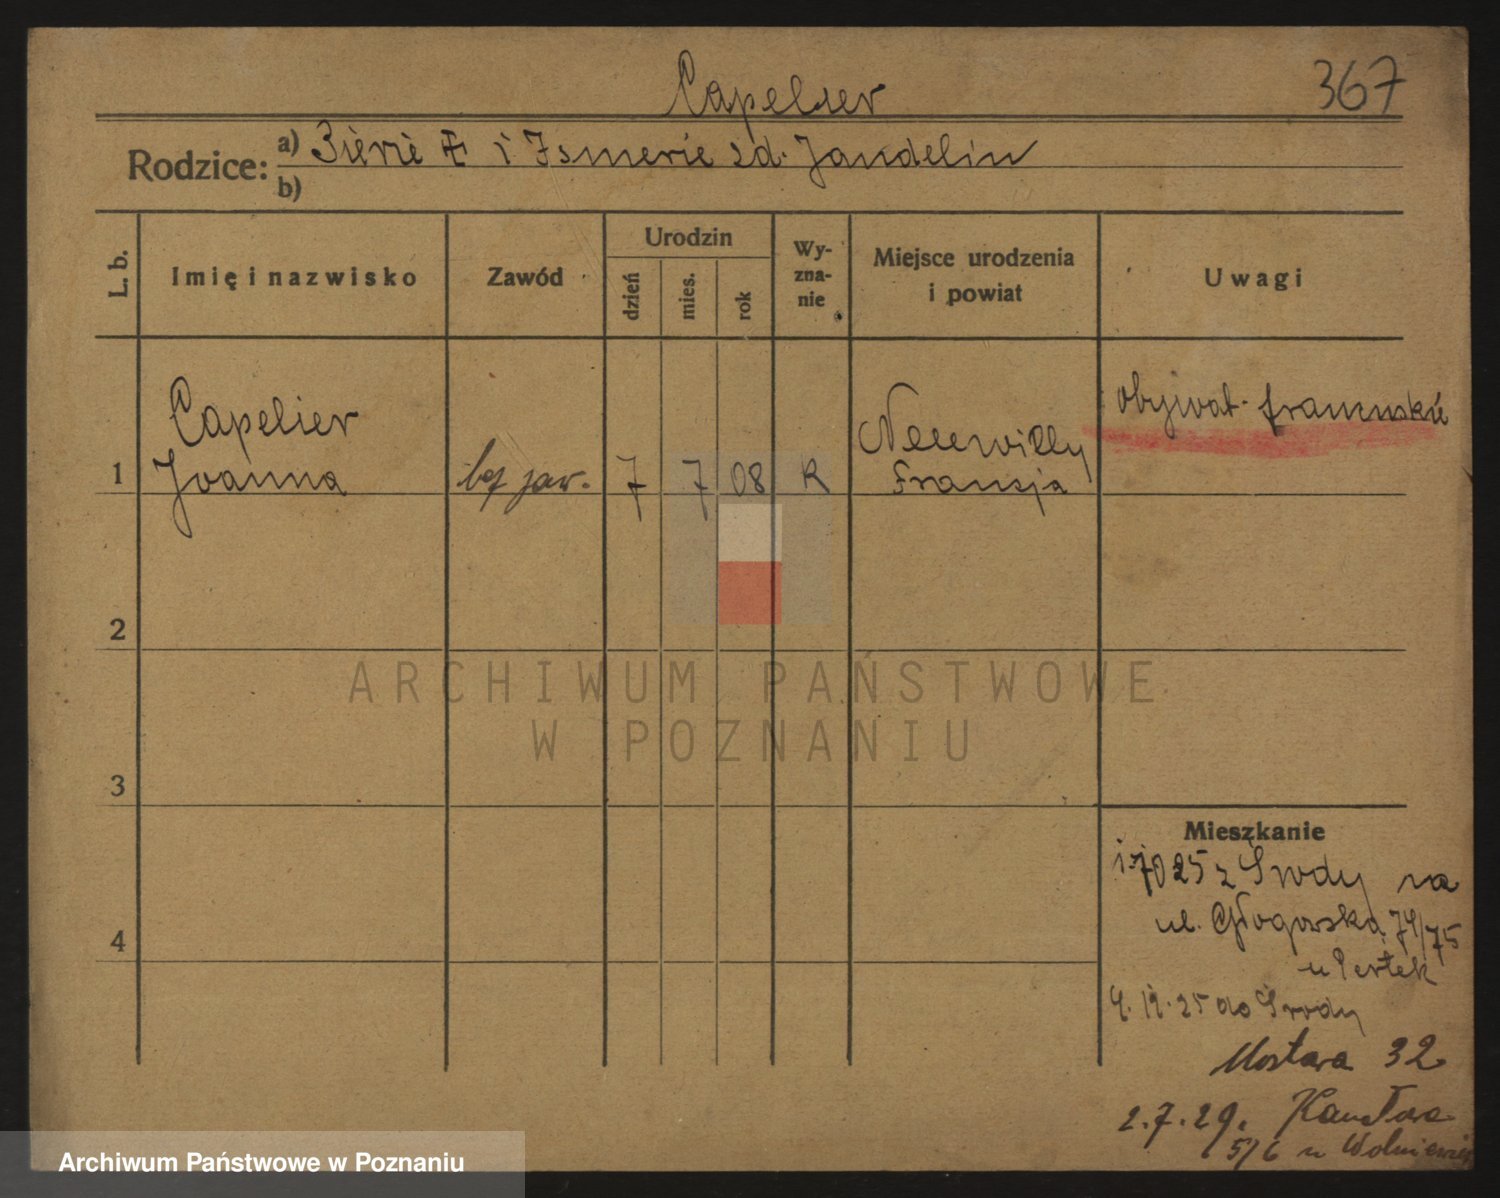 Capelier
367
Rodzice: a) i Ismerie zd. Jandelin
b)
L. b.
Imię i nazwisko
Zawód
Urodzin
dzień
mies.
rok
Wy-
zna-
nie
Miejsce urodzenia
i powiat
Uwagi
Capelier
1 Joanna
bez zaw.
7 7 08 R
Francja
obywat. francuskie
2
ARCHIWUM PAŃSTWOWE
W POZNANIU
3
Mieszkanie
25 z Środy na
ul. Głogowska 74/75
4
u Pertek
25 do Środy
Mostowa 32
2.7.29. Kantora
5/6 u
Archiwum Państwowe w Poznaniu